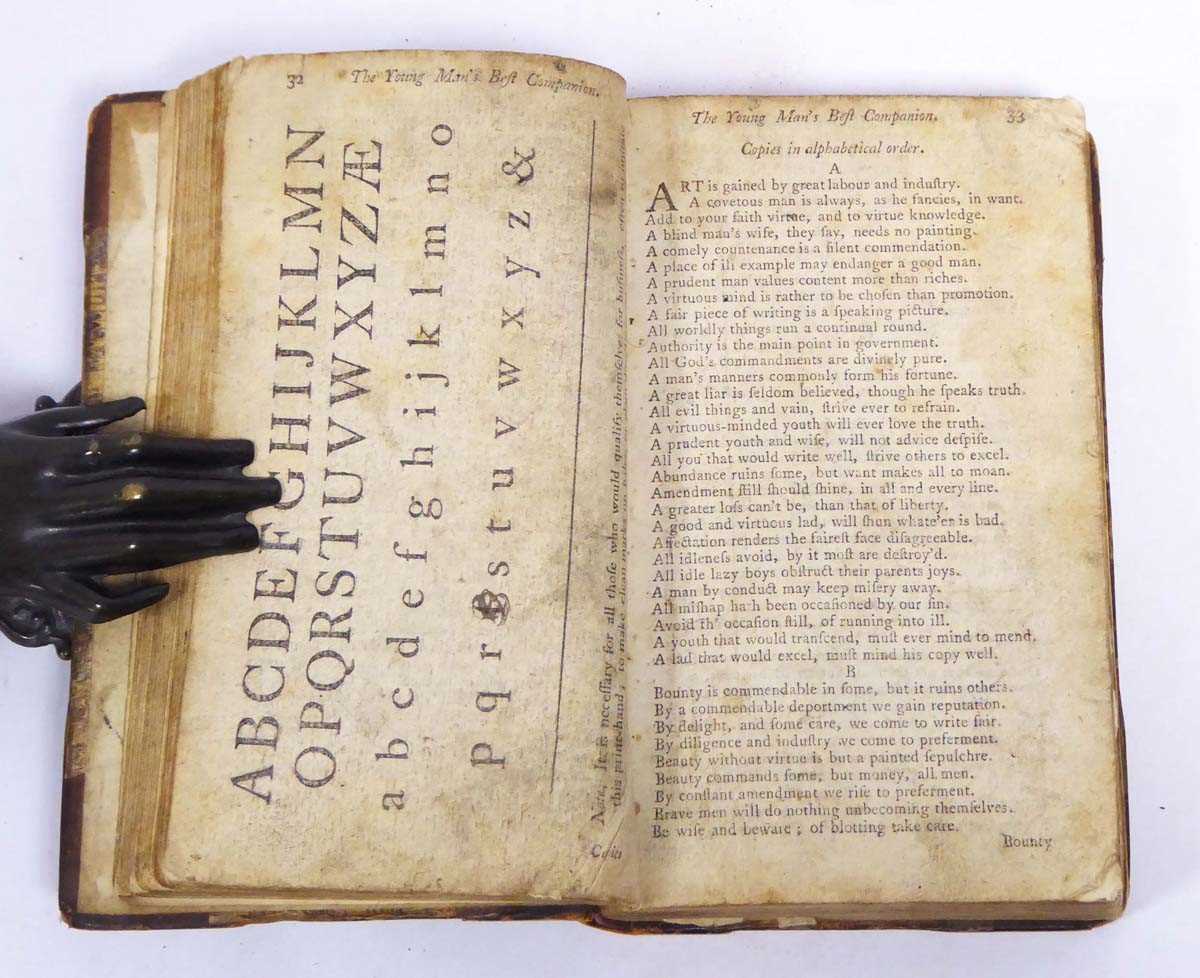 32 The Young Man's Beſt Companion.
ABCDEFGHIJKLMN
OPQRSTUVWXYZÆ
a b c d e f g h i j k l m n o
p q r s t u v w x y z &
Note, It is neceſſary for all thoſe who would qualify themſelves for buſineſs,
this print-hand; to make clean marks on
Copies
The Young Man's Beſt Companion. 33
Copies in alphabetical order.
A
ART is gained by great labour and induſtry.
A covetous man is always, as he fancies, in want.
Add to your faith virtue, and to virtue knowledge.
A blind man's wife, they ſay, needs no painting.
A comely countenance is a ſilent commendation.
A place of ill example may endanger a good man.
A prudent man values content more than riches.
A virtuous mind is rather to be choſen than promotion.
A fair piece of writing is a ſpeaking picture.
All worldly things run a continual round.
Authority is the main point in government.
All God's commandments are divinely pure.
A man's manners commonly form his fortune.
A great liar is ſeldom believed, though he ſpeaks truth.
All evil things and vain, ſtrive ever to refrain.
A virtuous-minded youth will ever love the truth.
A prudent youth and wiſe, will not advice deſpiſe.
All you that would write well, ſtrive others to excel.
Abundance ruins ſome, but want makes all to moan.
Amendment ſtill ſhould ſhine, in all and every line.
A greater loſs can't be, than that of liberty.
A good and virtuous lad, will ſhun whate'er is bad.
Affectation renders the faireſt face diſagreeable.
All idleneſs avoid, by it moſt are deſtroy'd.
All idle lazy boys obſtruct their parents joys.
A man by conduct may keep miſery away.
All miſhap hath been occaſioned by our ſin.
Avoid th' occaſion ſtill, of running into ill.
A youth that would tranſcend, muſt ever mind to mend.
A lad that would excel, muſt mind his copy well.
B
Bounty is commendable in ſome, but it ruins others.
By a commendable deportment we gain reputation.
By delight, and ſome care, we come to write fair.
By diligence and induſtry we come to preferment.
Beauty without virtue is but a painted ſepulchre.
Beauty commands ſome, but money, all men.
By conſtant amendment we riſe to preferment.
Brave men will do nothing unbecoming themſelves.
Be wiſe and beware; of blotting take care.
Bounty